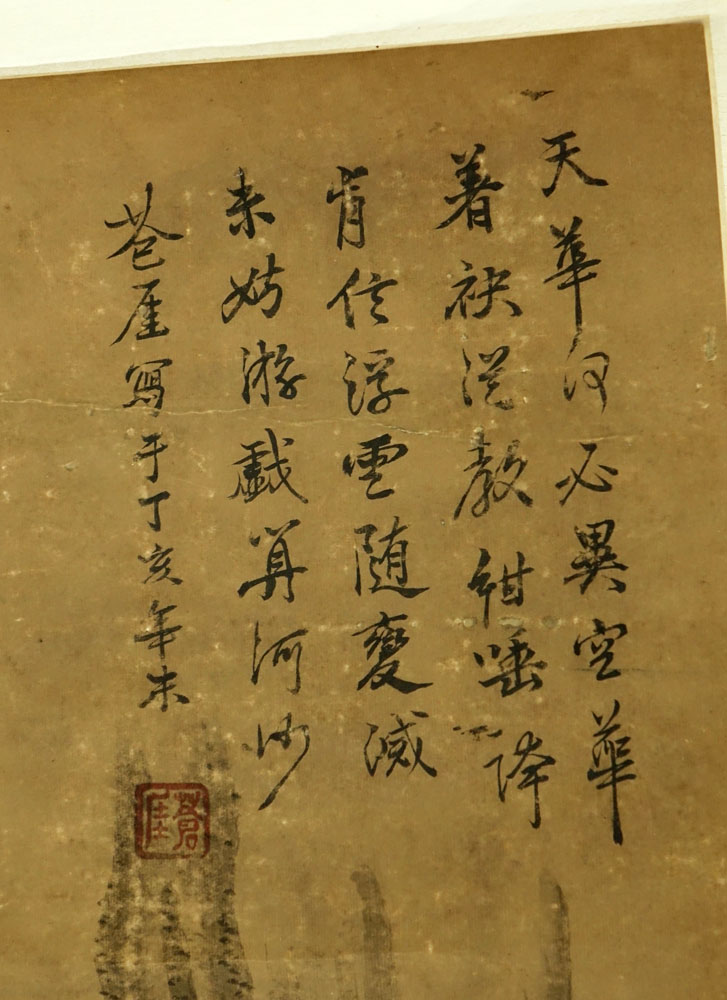 天華何必異空華
着袂從教紺唾降
肯信浮雲随變滅
未妨游戲算河沙
苍厓寫于丁亥年末
蒼厓